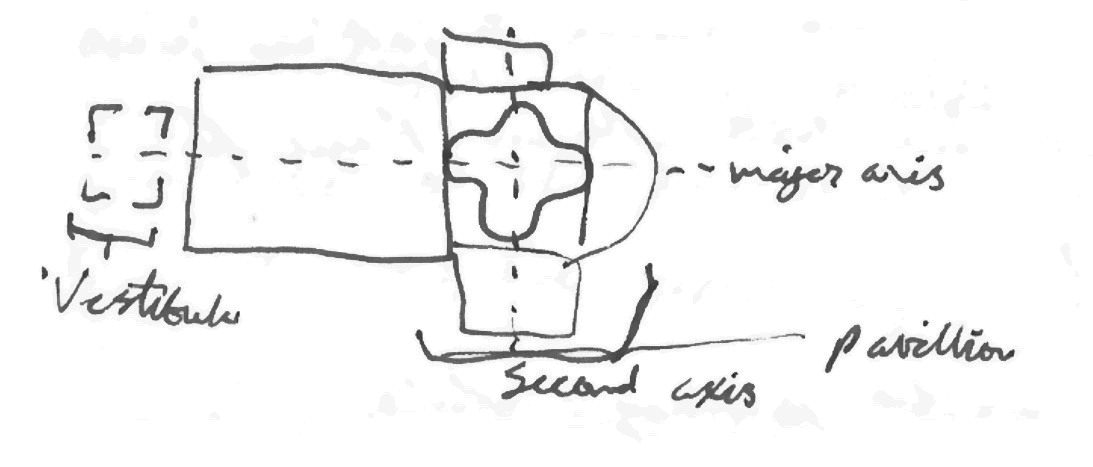 major axis
Vestibule
pavillion
Second axis